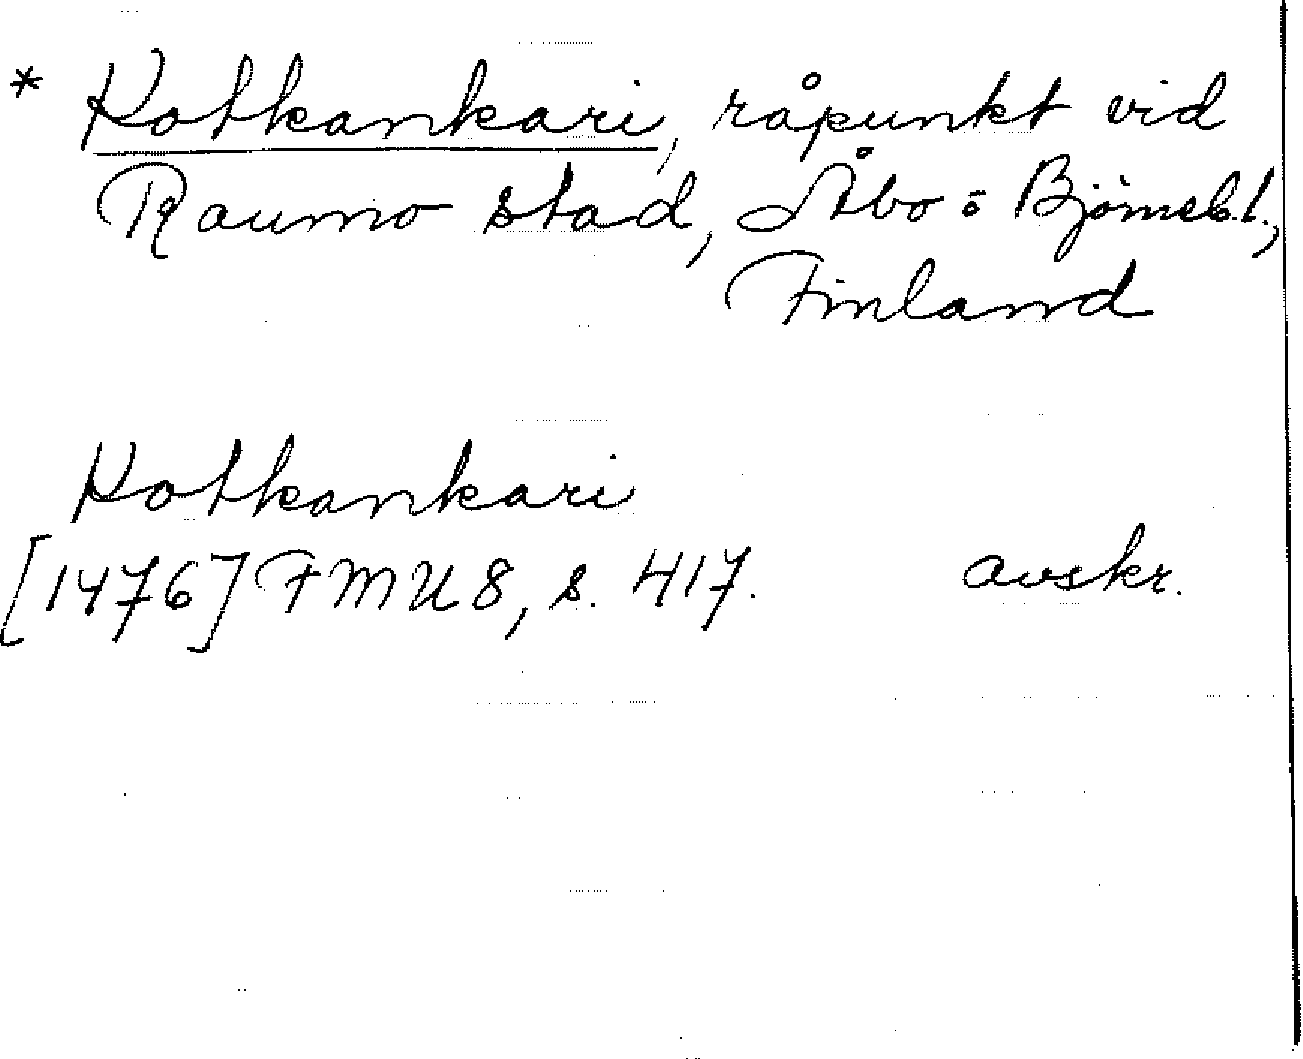 * Kotkankari, råpunkt vid
Raumo stad, Åbo o Björneb.l.,
Finland
Kotkankari
[1476] FMU 8, s. 417. avskr.